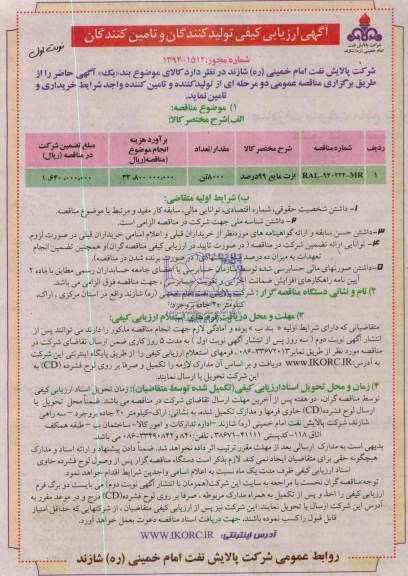 آگهی ارزیابی کیفی تولیدکنندگان و تامین کنندگان
نوبت اول
شرکت پالایش نفت
امام خمینی (ره) شازند
شماره مجوز: ۱۵۱۲-۱۳۹۴
شرکت پالایش نفت امام خمینی (ره) شازند در نظر دارد کالای موضوع بند «یک» آگهی حاضر را از
طریق برگزاری مناقصه عمومی دو مرحله ای از تولیدکننده و تامین کننده واجد شرایط خریداری و
تامین نماید.
۱) موضوع مناقصه:
الف) شرح مختصر کالا:
ردیف
شماره مناقصه
شرح مختصر کالا
مقدار/تعداد
برآورد هزینه انجام موضوع مناقصه (ریال)
مبلغ تضمین شرکت در مناقصه (ریال)
۱
RAL-9402220-MR
ازت مایع ۹۹درصد
۸۰۰۰تن
۳۲,۸۰۰,۰۰۰,۰۰۰
۱,۶۴۰,۰۰۰,۰۰۰
ب) شرایط اولیه متقاضی:
۱- داشتن شخصیت حقوقی، شماره اقتصادی، توانایی مالی، سابقه کار مفید و مرتبط با موضوع مناقصه.
۲- داشتن شناسه ملی جهت شرکت در مناقصه الزامی است.
۳- داشتن حسن سابقه و ارائه گواهینامه های موردنظر از خریداران قبلی و اعلام اسامی خریداران قبلی در صورت لزوم
۴- توانایی ارائه تضمین شرکت در مناقصه ( در صورت تایید در ارزیابی کیفی مناقصه گران) و همچنین تضمین انجام
تعهدات به میزان ده درصد
در صورت برنده شدن در مناقصه.
۵- داشتن صورتهای مالی حسابرسی شده توسط سازمان حسابرسی یا اعضای جامعه حسابداران رسمی مطابق با ماده ۲
آیین نامه راهکارهای افزایش ضمانت
جهت مناقصه فوق الزامی می باشد.
۲) نام و نشانی دستگاه مناقصه گزار: شرکت پالایش نفت امام خمینی (ره) شازند واقع در استان مرکزی ، اراک،
کیلومتر ۲۰ جاده بروجرد.
۳) مهلت و محل دریافت فرم های استعلام ارزیابی کیفی:
متقاضیانی که دارای شرایط اولیه « بند ب » بوده و آمادگی لازم جهت انجام مناقصه مذکور را دارند می توانند پس از
انتشار آگهی نوبت دوم ( سه روز پس از انتشار آگهی نوبت اول ) به مدت ۵ روز کاری ضمن ارسال تقاضای شرکت در
مناقصه مورد نظر از طریق نمابر ، فرمهای استعلام ارزیابی کیفی را از طریق پایگاه اینترنتی این شرکت
به آدرس: WWW.IKORC.IR دریافت و بر اساس آن مدارک لازمه را تکمیل و صرفا بر روی لوح فشرده (CD) به
این شرکت تحویل یا ارسال نمایند.
۴) زمان و محل تحویل اسناد ارزیابی کیفی (تکمیل شده توسط متقاضیان): زمان تحویل اسناد ارزیابی کیفی
توسط مناقصه گران، دو هفته پس از آخرین مهلت ارسال تقاضای شرکت در مناقصه می باشد. ضمناً محل تحویل یا
ارسال لوح فشرده (CD) حاوی فرمها و مدارک تکمیل شده، به نشانی: اراک- کیلومتر ۲۰ جاده بروجرد – سه راهی
شازند، شرکت پالایش نفت امام خمینی (ره) شازند – اداره تدارکات و امور کالا – ساختمان ب – طبقه همکف
اتاق ۱۱۸- کدپستی ۴۱۱۱۱-۳۸۶۷۱، تلفن: می باشد.
بدیهی است به مدارک ارسالی بعد از مهلت مقرر ترتیب اثر داده نخواهد شد. ضمناً دادن پیشنهاد و ارائه اسناد و مدارک
هیچگونه حقی برای متقاضیان ایجاد نمی کند. لازم بذکر است دستگاه مناقصه گزار پس از وصول لوح فشرده حاوی
اسناد ارزیابی کیفی ظرف مدت یک ماه نسبت به اعلام اسامی واجدین شرایط اقدام خواهد نمود.
توجه: مناقصه گران نخست با مراجعه به سایت این شرکت (همزمان با انتشار آگهی نوبت دوم) می بایست دو برگ فرم
ارزیابی کیفی را اخذ و پس از تکمیل به همراه مدارک مربوطه ، صرفا بر روی لوح فشرده (CD) درج و در موعد مقرر به
آدرس این شرکت ارسال یا تحویل نمایند. این شرکت نیز پس از ارزیابی کیفی متقاضیان ، از شرکتهایی که حداقل امتیاز
قابل قبول را کسب نموده باشند، جهت دریافت اسناد مناقصه دعوت بعمل خواهد آورد.
آدرس اینترنتی: WWW.IKORC.IR
روابط عمومی شرکت پالایش نفت امام خمینی (ره) شازند